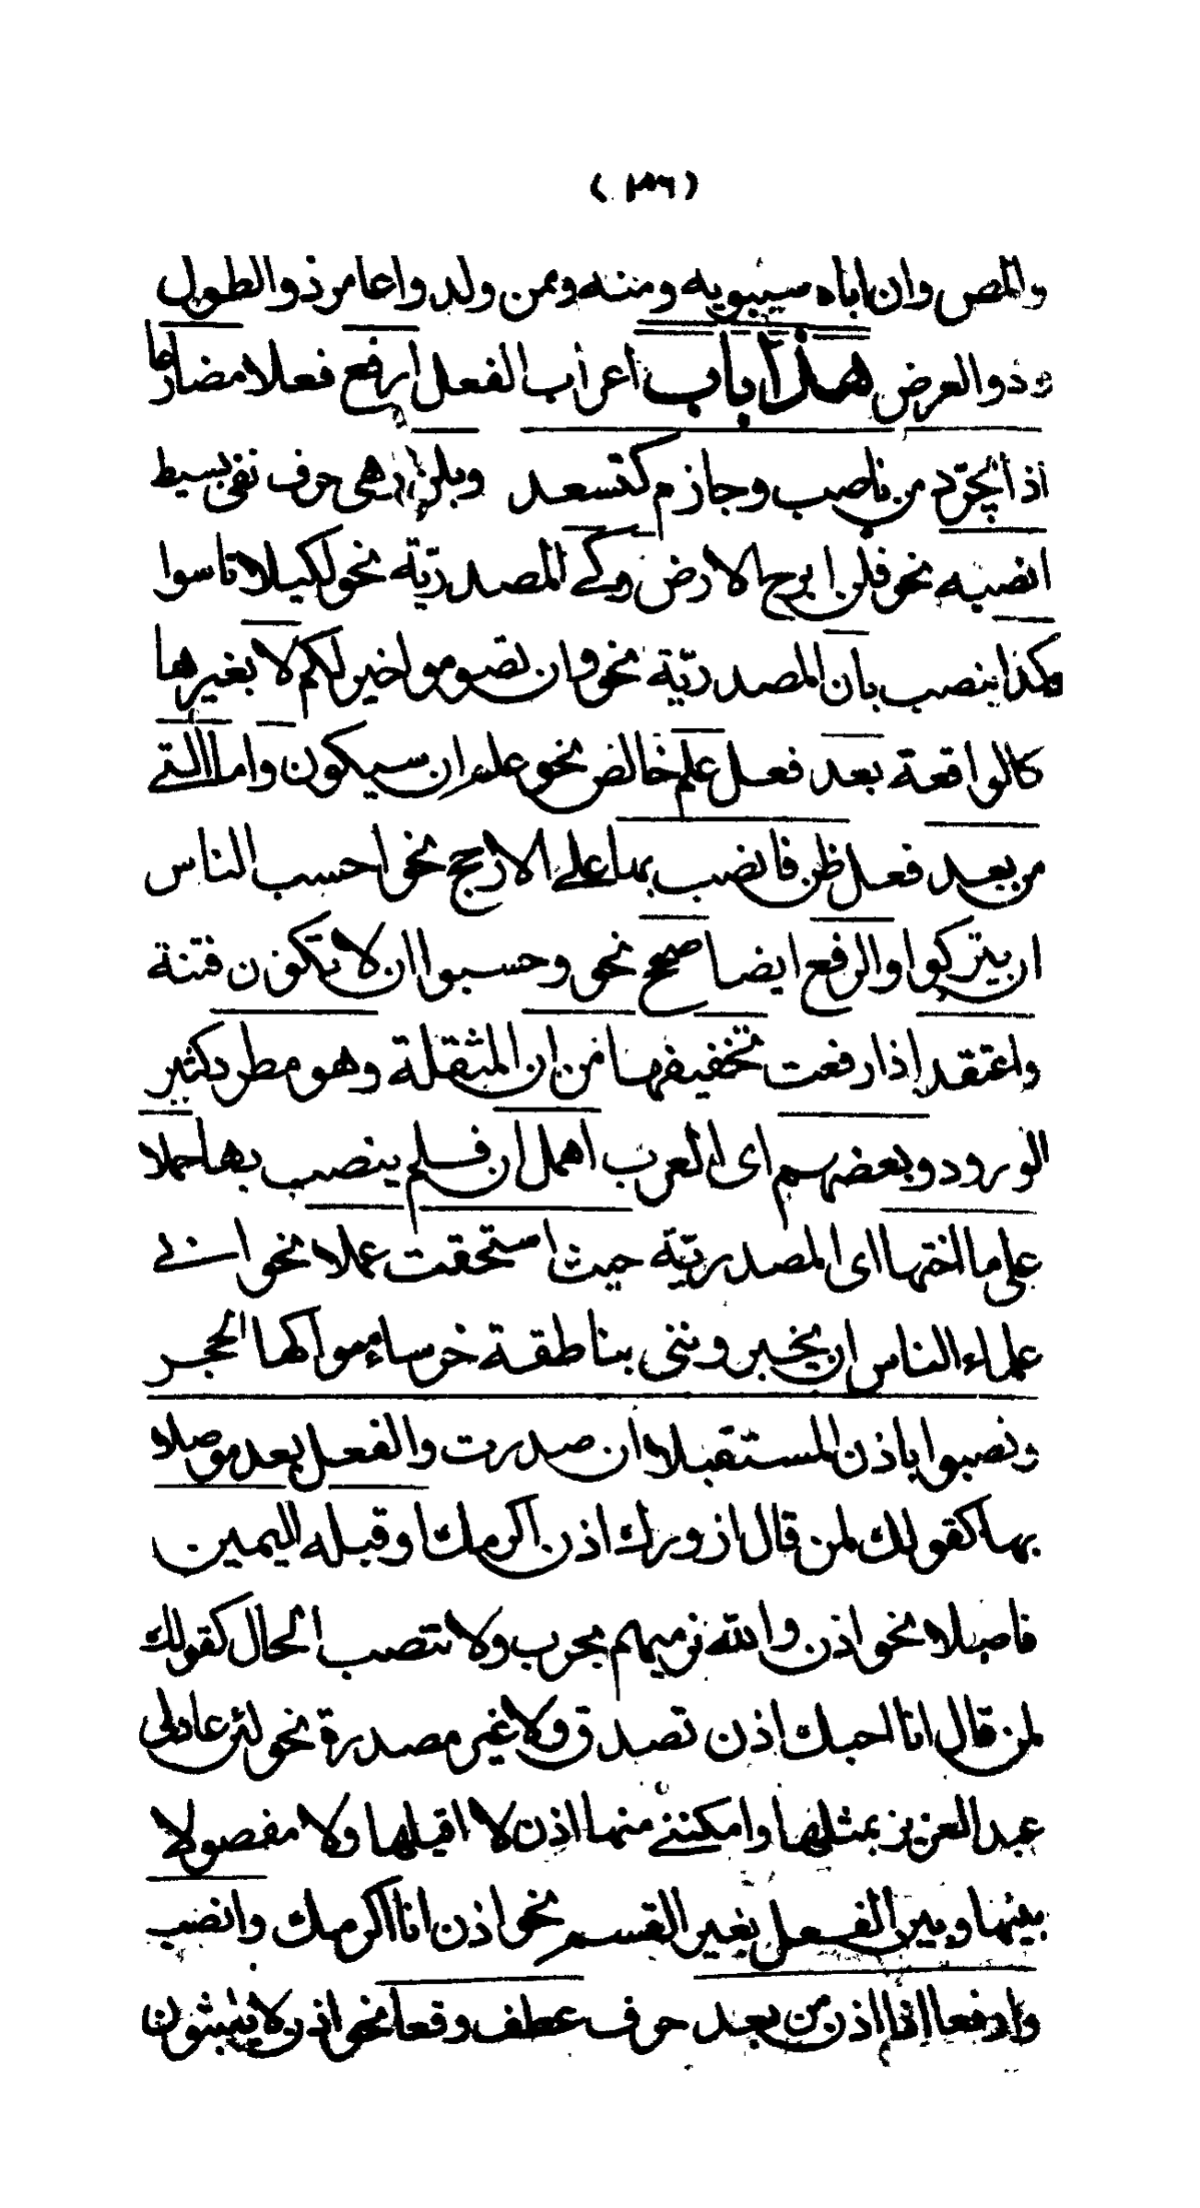 (٣٦)
والمص وان اباه سيبويه ومنه وممن ولد واعامر ذو الطول
وذو العرض هذا باب اعراب الفعل ارفع فعلا مضارعا
اذا يجرّد من ناصب وجازم كتسعد وبلن وهى حرف نفى بسيط
انصبه نحو فلن ابرح الارض وكے المصدريّة نحو لكيلا تاسوا
وكذا ينصب بان المصدريّة نحو وان تصوموا خير لكم لا بغيرها
كالواقعة بعد فعل علم خالص نحو علم ان سيكون واما التے
من بعد فعل ظن فانصب بها علے الارجح نحو احسب الناس
ان يتركوا والرفع ايضا صحح نحو وحسبوا ان لا تكون فتنة
واعتقد اذا رفعت تخفيفها من ان المثقلة وهو مطرد كثير
الورود وبعضهم اى العرب اهمل ان فلم ينصب بها حملا
على ما اختها اى المصدريّة حيث استحقت عملا نحو انے
علماء الناس ان يخبرونني بناطقة خرساء مسواكها الحجر
ونصبوا باذن المستقبلا ان صدرت والفعل بعد موصلا
بها كقولك لمن قال ازورك اذن اكرمك او قبله اليمين
فاصلا نحو اذن والله نرميهم بحرب ولا تنصب الحال كقولك
لمن قال انا احبك اذن تصدق ولا غير مصدرة نحو لئن عاد لى
عبد العزيز بمثلها وامكننے منها اذن لا اقيلها ولا مفصولا
بينها وبين الفعل بغير القسم نحو اذن انا اكرمك وانصب
وارفعا اذا اذن من بعد حرف عطف وقعا نحو اذن لا يلبثون